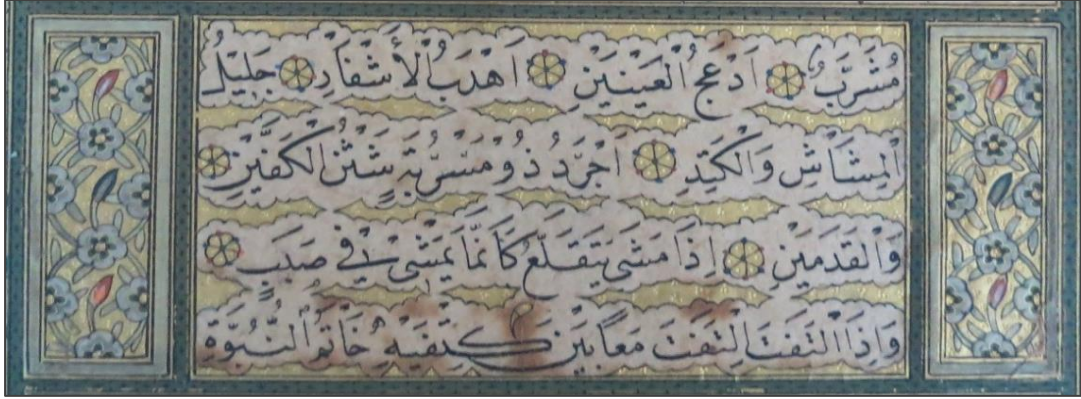 مُشَرَّبٌ اَدْعَجُ الْعَيْنَيْنِ اَهْدَبُ الْأَشْفَارِ جَلِيْلُ
الْمِشَاشِ وَالْكَتِدِ اَجْرَدُ ذُو مَسْرُبَةٍ شَثْنُ الْكَفَّيْنِ
وَالْقَدَمَيْنِ اِذَا مَشَى يَتَقَلَّعُ كَاَنَّمَا يَمْشِى فِى صَبَبٍ
وَاِذَا الْتَفَتَ الْتَفَتَ مَعًا بَيْنَ كَتِفَيْهِ خَاتَمُ النُّبُوَّةِ